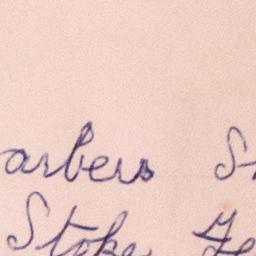 arbers S
Stoke Ze